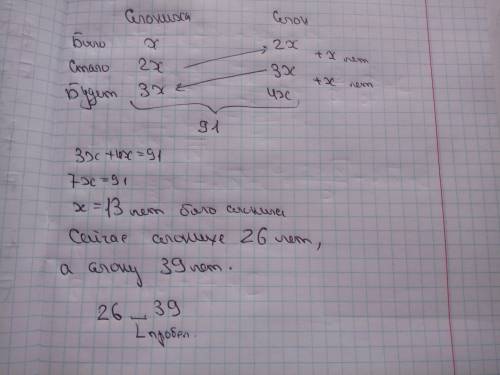 Слониха Слон
Было x 2x + x лет
Стало 2x 3x + x лет
Будет 3x 4x
91
3x+4x=91
7x=91
x=13 лет было слонихе
Сейчас слонихе 26 лет,
а слону 39 лет.
26 _ 39
пробел.